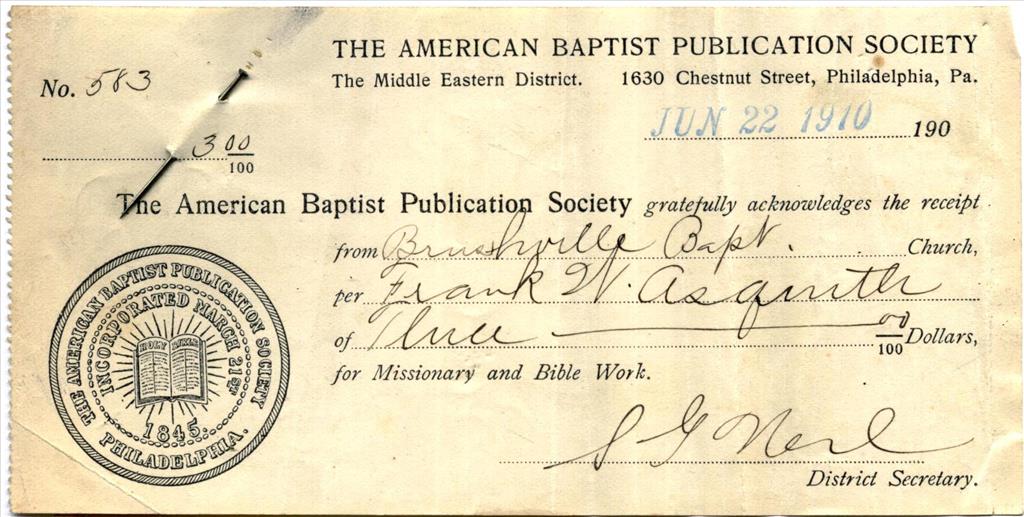 THE AMERICAN BAPTIST PUBLICATION SOCIETY
No. 583
The Middle Eastern District. 1630 Chestnut Street, Philadelphia, Pa.
JUN 22 1910 190
3 00/100
The American Baptist Publication Society gratefully acknowledges the receipt
from Brushville Bapt. Church,
per Frank W. Asquith
of Three 00/100 Dollars,
for Missionary and Bible Work.
THE AMERICAN BAPTIST PUBLICATION SOCIETY
INCORPORATED MARCH 21ST
HOLY BIBLE
1845.
PHILADELPHIA.
S G Neil
District Secretary.